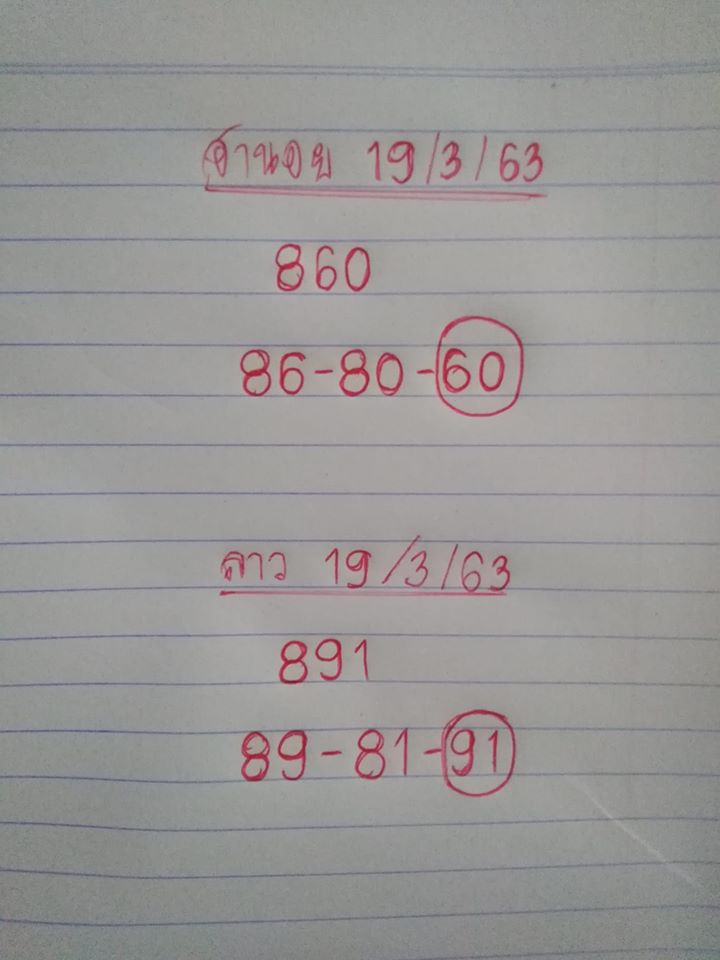 ฮานอย 19/3/63
860
86-80-60
ลาว 19/3/63
891
89-81-91